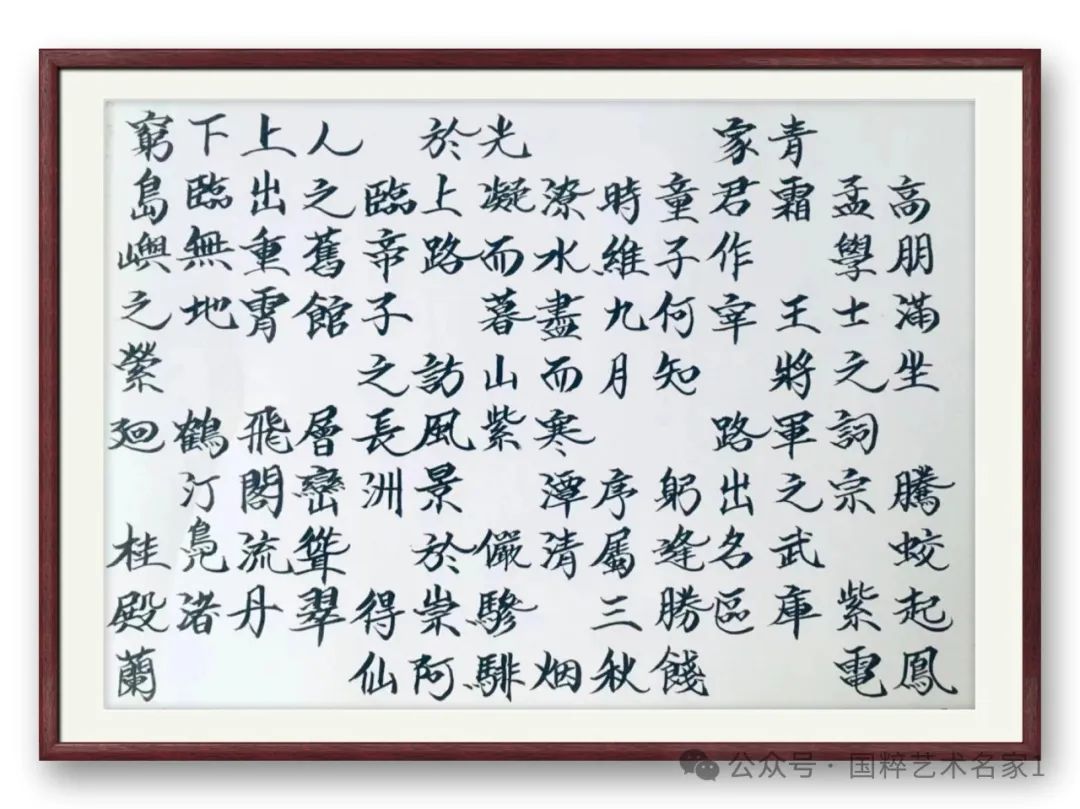 高朋滿坐 騰蛟起鳳
孟學士之詞宗 紫電
青霜 王將軍之武庫
家君作宰 路出名區
童子何知 躬逢勝餞
時維九月 序屬三秋
潦水盡而寒潭清 烟
光凝而暮山紫 儼驂騑
於上路 訪風景於崇阿
臨帝子之長洲 得仙
人之舊館 層巒聳翠
上出重霄 飛閣流丹
下臨無地 鶴汀鳧渚
窮島嶼之縈廻 桂殿蘭
公众号 · 国粹艺术名家1